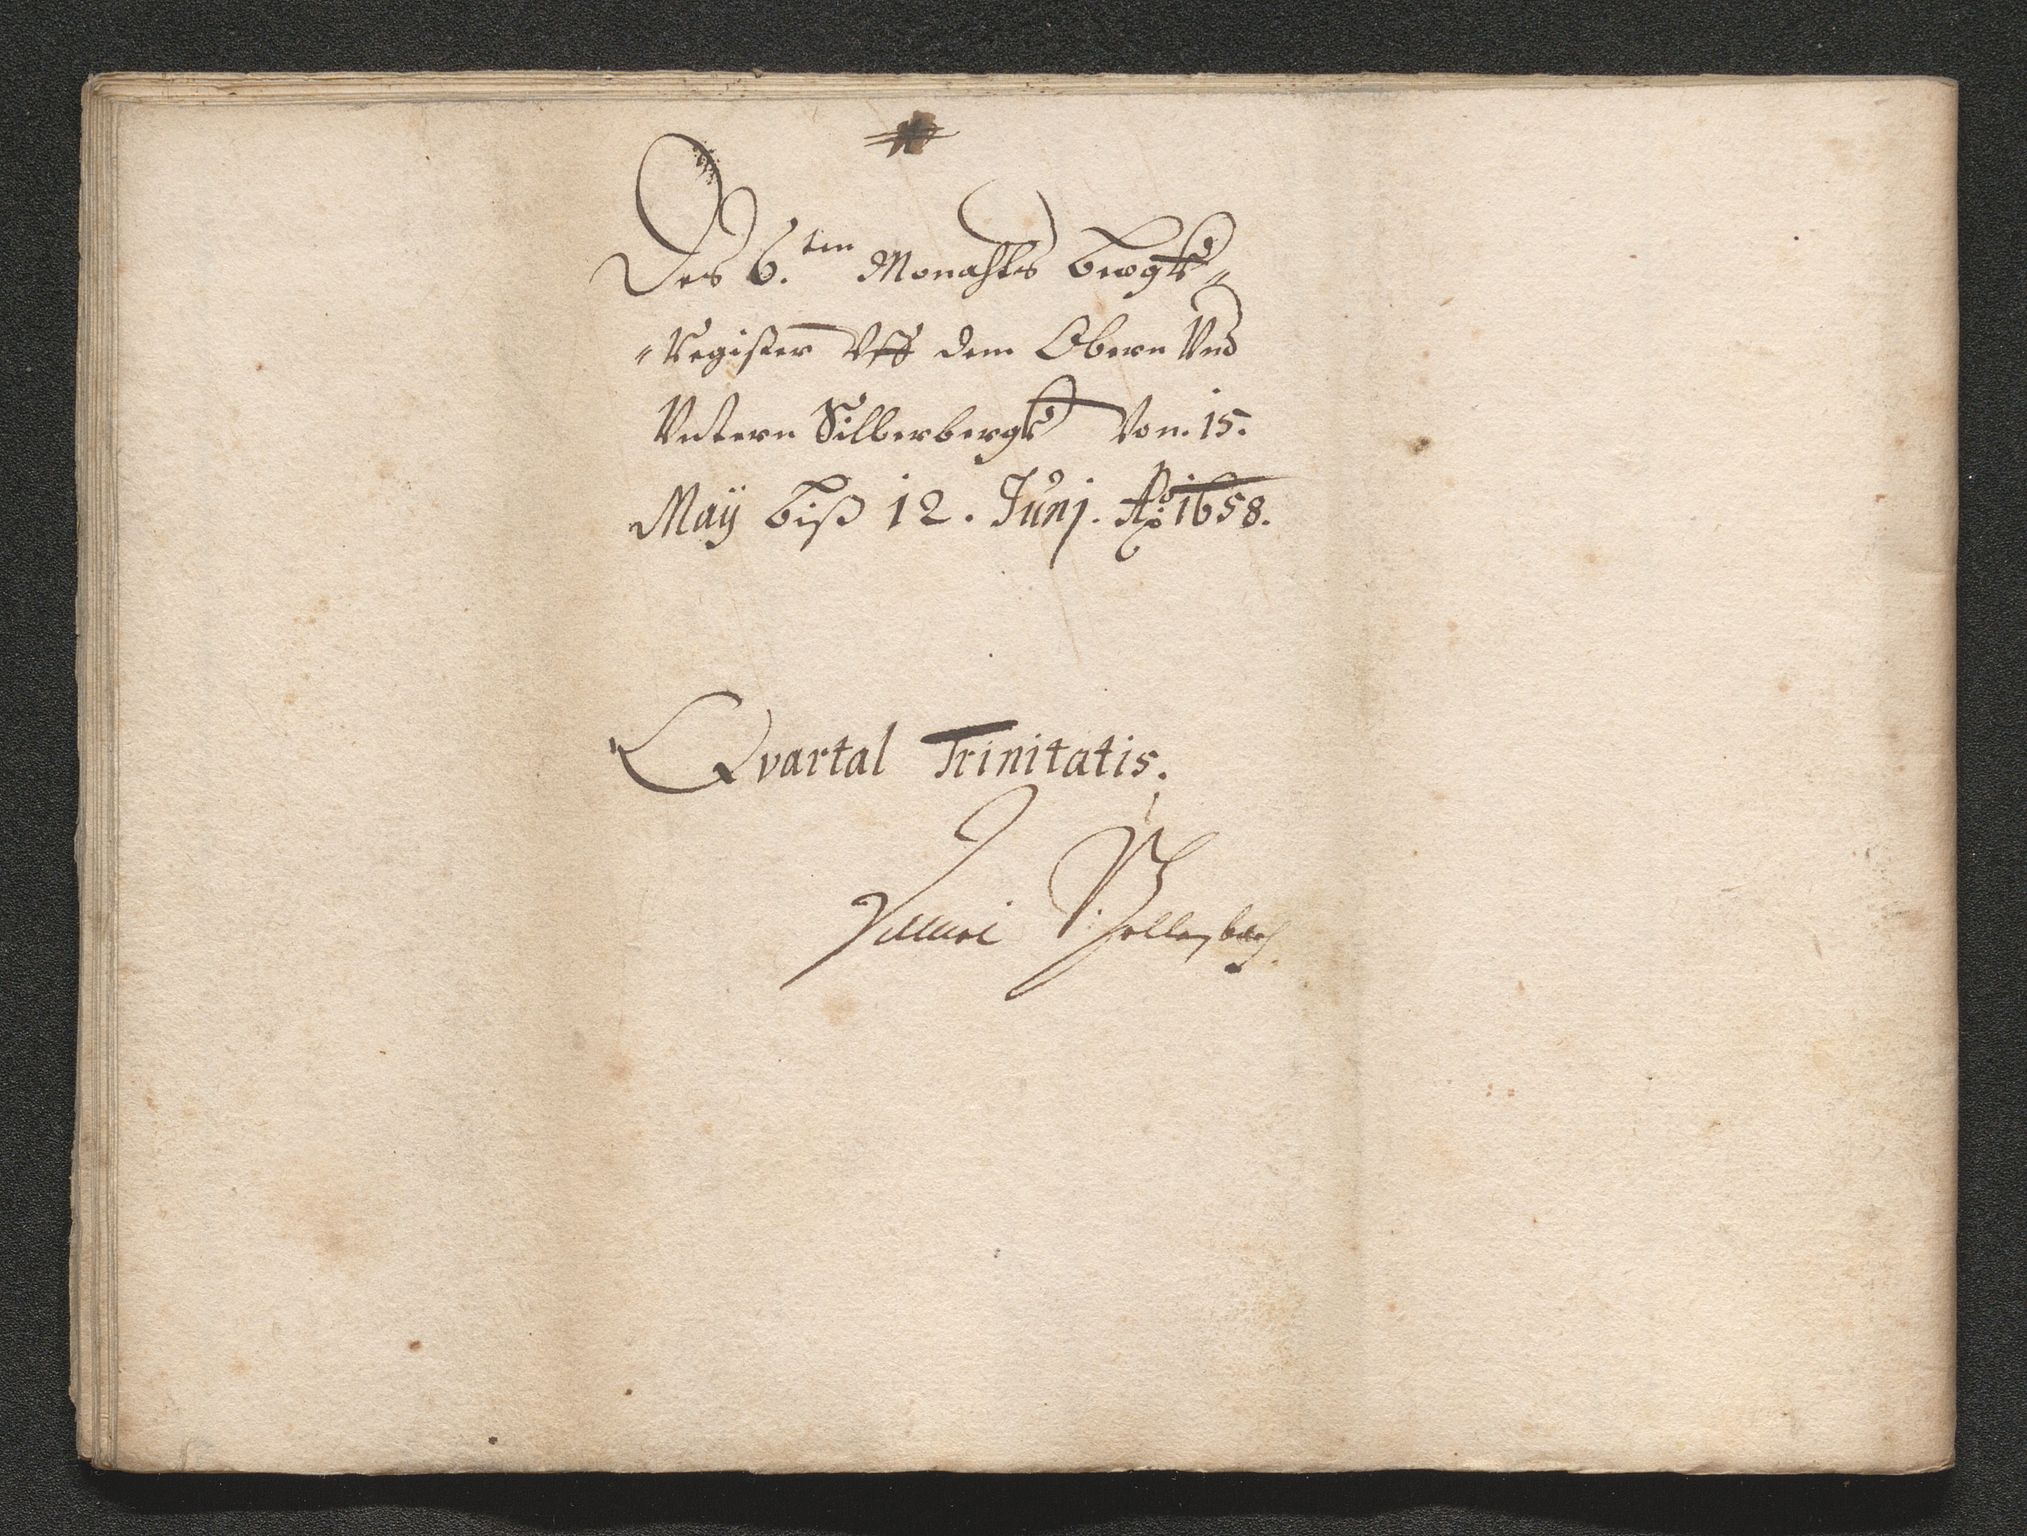 Des 6.ten Monahts Bergk=
=Register Vff dem Obern Vnd
Vntern Silberbergk Von. 15.
Maÿ biß 12. Junj. Ao: 1658.
Qvartal Trinitatis.